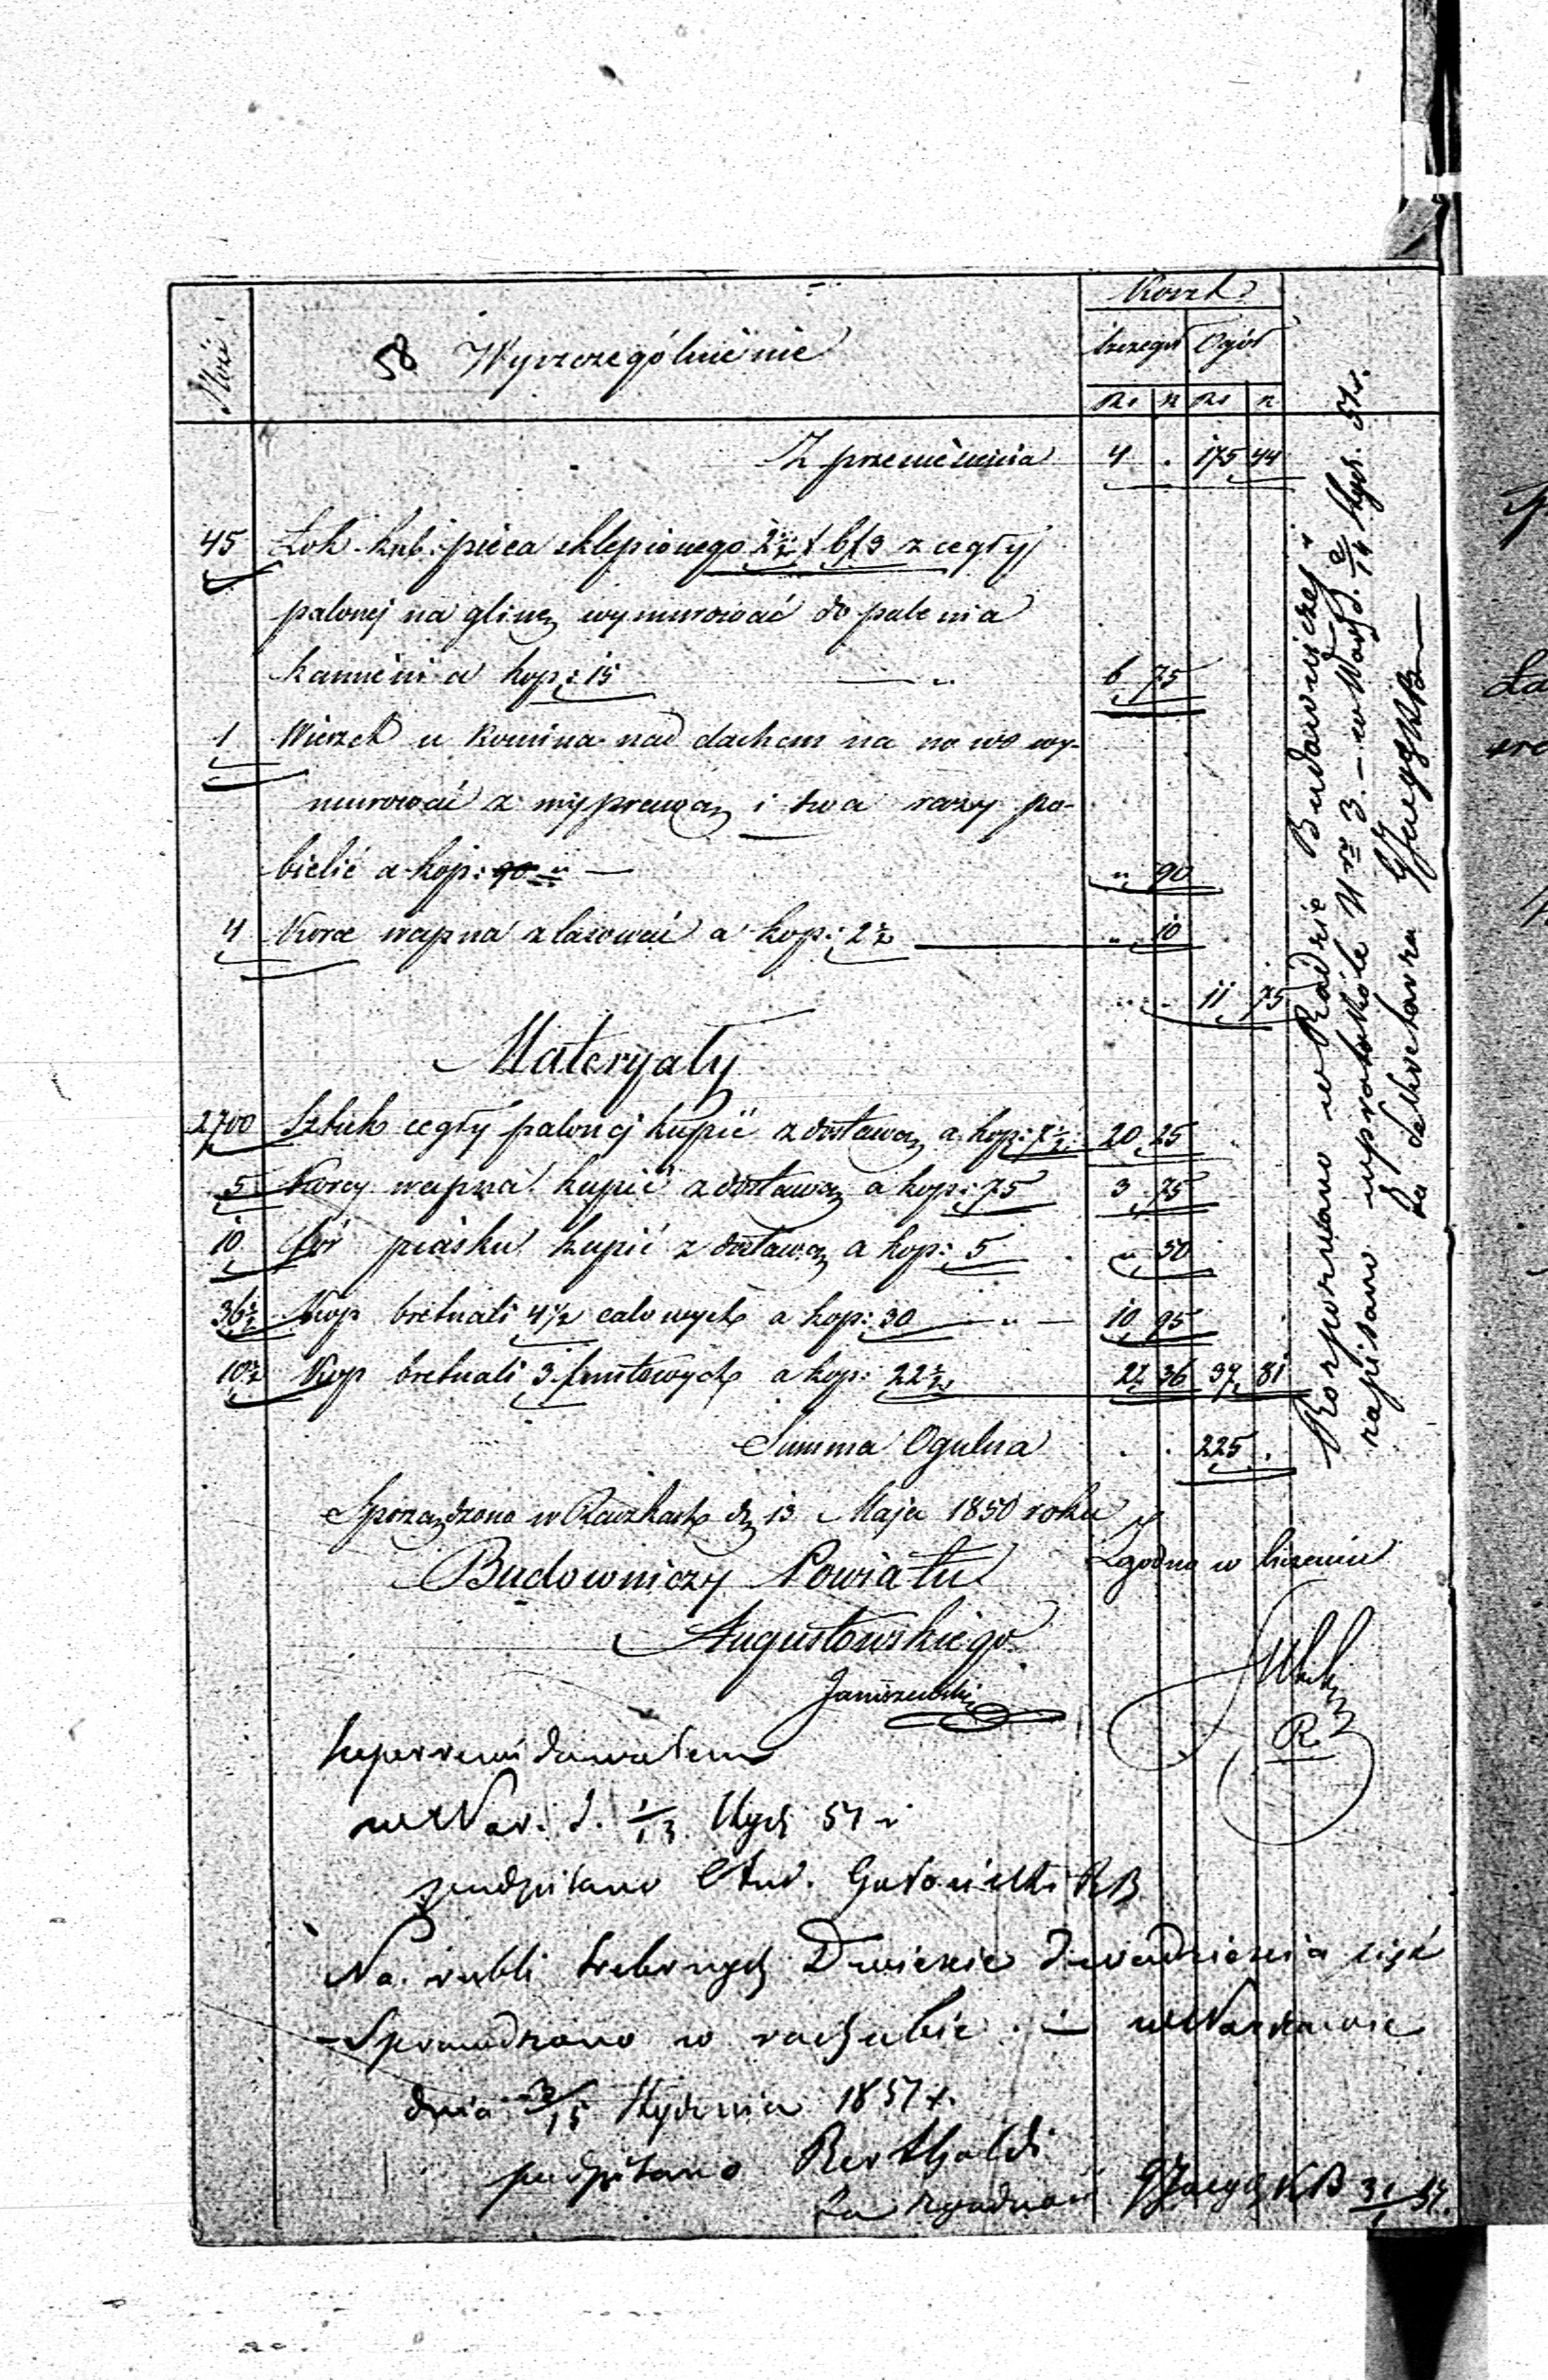 Ilość
58 Wyszczególnienie
Koszt
Szczegół Ogół
Rs k Rs k
Z przeniesienia 4 . 175 44
45 Łok. kub: pieca sklepionego 2½ / 6 / 3 z cegły
palonej na glinę wymurować do palenia
kamieni a kop: 15 — „ 6 75
1 Wierzch u komina nad dachem na nowo wy-
murować z wyprawą i dwa razy po-
bielić a kop: 90 „ — „ 90
4 Korce wapna zlasować a kop: 2½ „ 10
11 75
Materyały
2700 Sztuk cegły palonej kupić z dostawą a kop: 20 25
5 Korcy wapna kupić z dostawą a kop: 75 3 75
10 Fór piasku kupić z dostawą a kop: 5 „ 50
36½ Kop bretnali 4½ calowych a kop: 30 — „ — 10 95
10½ Kop bretnali 3 funtowych a kop: 22½ 2 36 37 81
Summa Ogulna . . 225 .
Sporządzono w Raczkach d. 13 Maja 1850 roku
Budowniczy Powiatu
Augustowskiego
Janiszewski
Zgodno w liczeniu
R
Superrewidowałem
w War. d. 1/13 Stycz 51 r
podpisano And. Gołoński RB
Na rubli srebrnych Dwieście Dwadzieścia pięć
Sprawdzono w rachubie. — w Warszawie
dnia 3/15 Stycznia 1851 r.
podpisano Berthaldi
Za zgodność
Rozpoznano w Radzie Budowniczej i
zapisano w protokóle N ro 3. — w War. d. 2/14 Stycz. 51 r.
Za Sekretarza